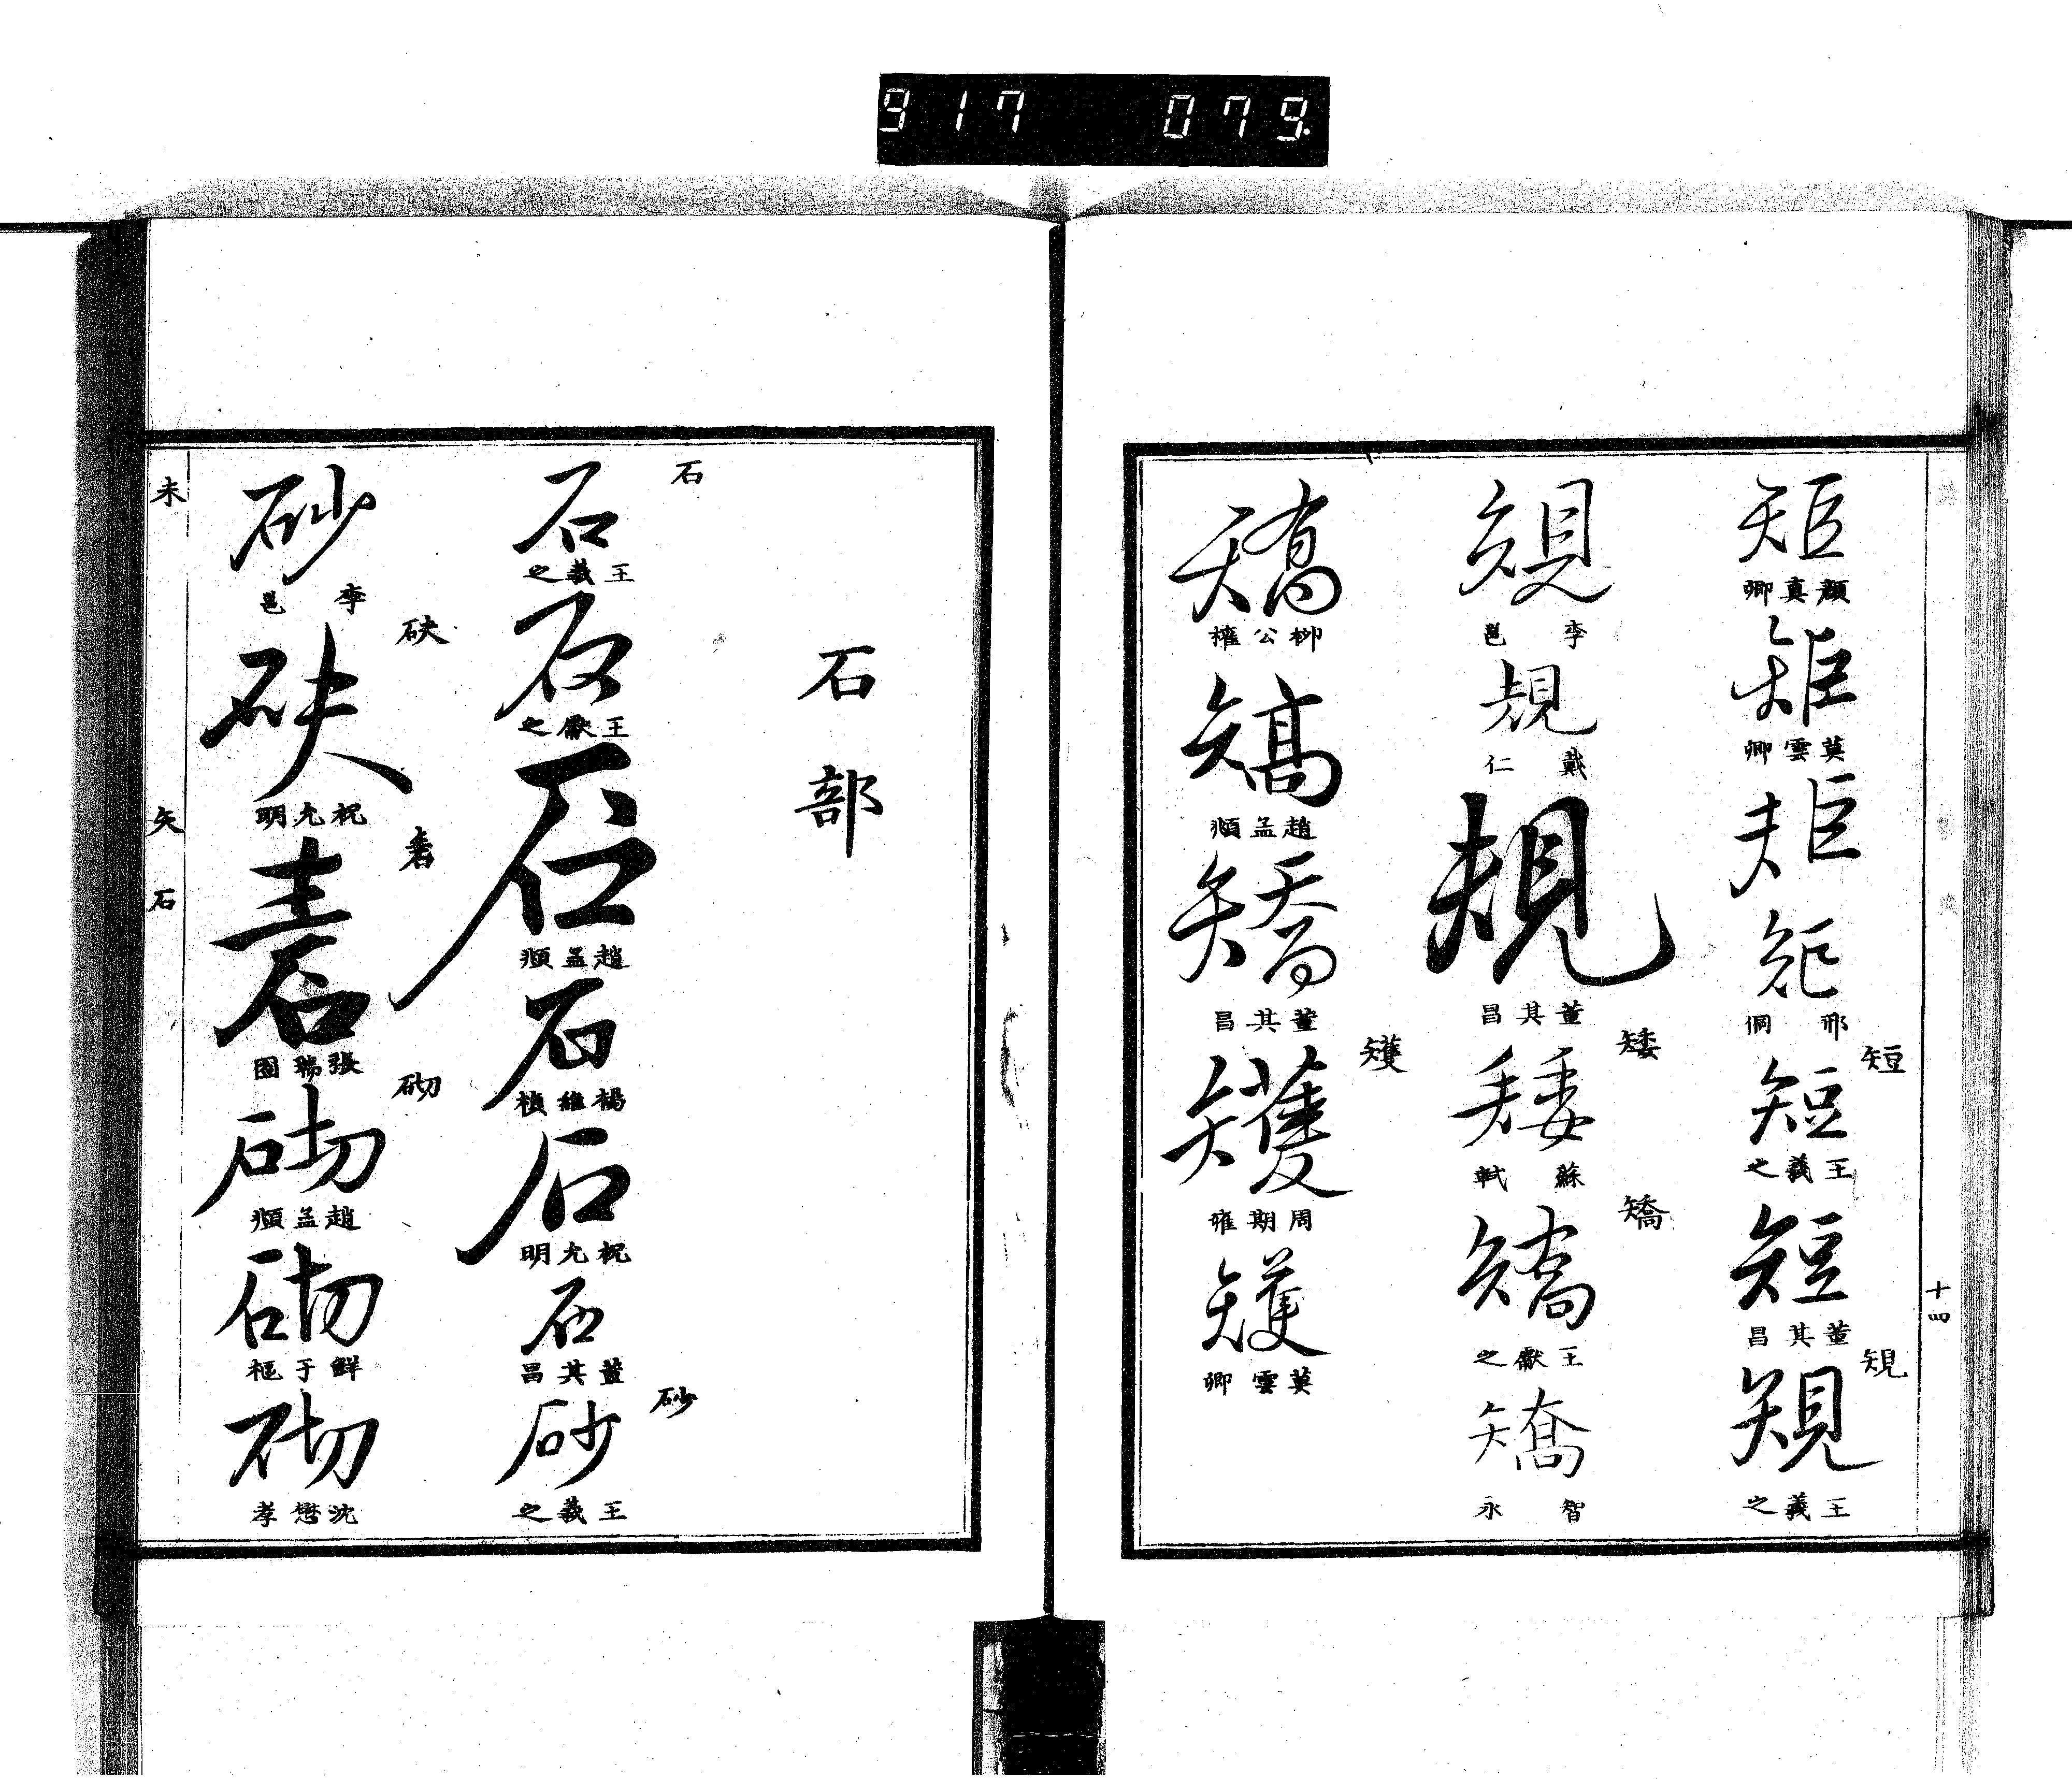 917 079
十四
矩
顏真卿
矩
莫雲卿
矩
矩
邢侗
短
短
王羲之
短
董其昌
規
規
王羲之
規
李邕
規
戴仁
規
董其昌
矮
矮
蘇軾
矯
矯
王獻之
矯
智永
矯
柳公權
矯
趙孟頫
矯
董其昌
矱
矱
周期雍
矱
莫雲卿
石部
石
石
王羲之
石
王獻之
石
趙孟頫
石
楊維楨
石
祝允明
石
董其昌
砂
砂
王羲之
砂
李邕
砆
砆
祝允明
砉
砉
張瑞圖
砌
砌
趙孟頫
砌
鮮于樞
砌
沈懋孝
未
矢
石